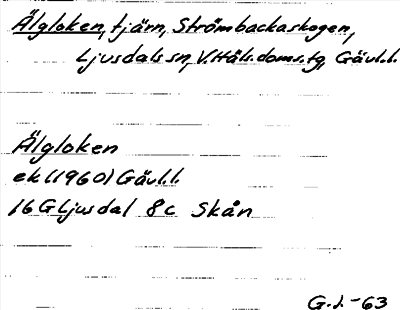 Älgloken, tjärn, Strömbackaskogen,
Ljusdals sn, V. Häls. doms. tg, Gävl.l.
Älgloken
ek (1960) Gävl.l.
16 G Ljusdal 8c Skån
G.J.-63